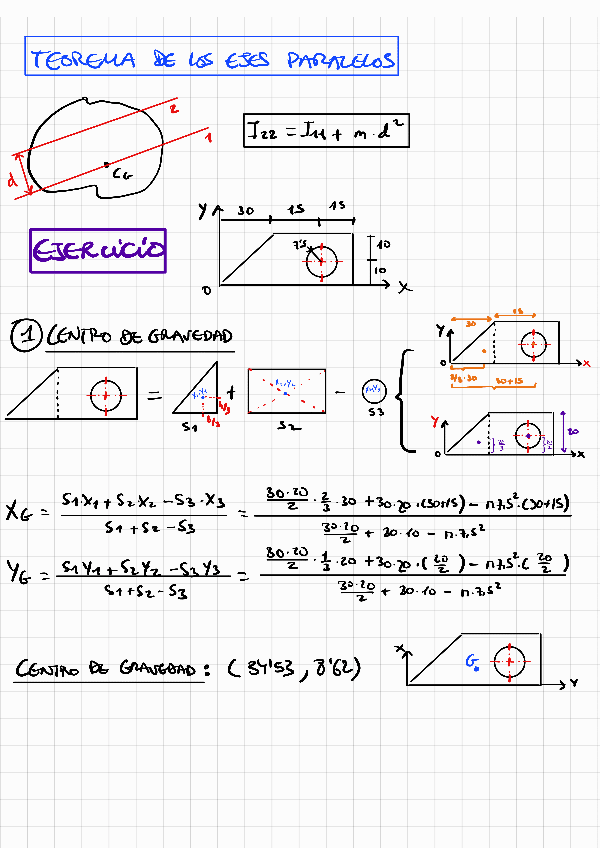 TEOREMA DE LOS EJES PARALELOS
2
1
I22 = I11 + m·d²
d
CG
EJERCICIO
Y
30 15 15
7'5
10
10
0
X
1 CENTRO DE GRAVEDAD
= + -
h/3
b/3
S1
S2
S3
15
30
Y
0
X
2/3·30
30+15
Y
20
0
X
XG = S1·X1 + S2·X2 - S3·X3 / S1 + S2 - S3 = 30·20/2 · 2/3 · 30 + 30·20·(30+15) - π7,5²·(30+15) / 30·20/2 + 30·10 - π·7,5²
YG = S1 Y1 + S2 Y2 - S3 Y3 / S1 + S2 - S3 = 30·20/2 · 1/3 · 20 + 30·20·(20/2) - π7,5²·(20/2) / 30·20/2 + 30·10 - π·7,5²
CENTRO DE GRAVEDAD: (34'53, 8'62)
X
G
Y